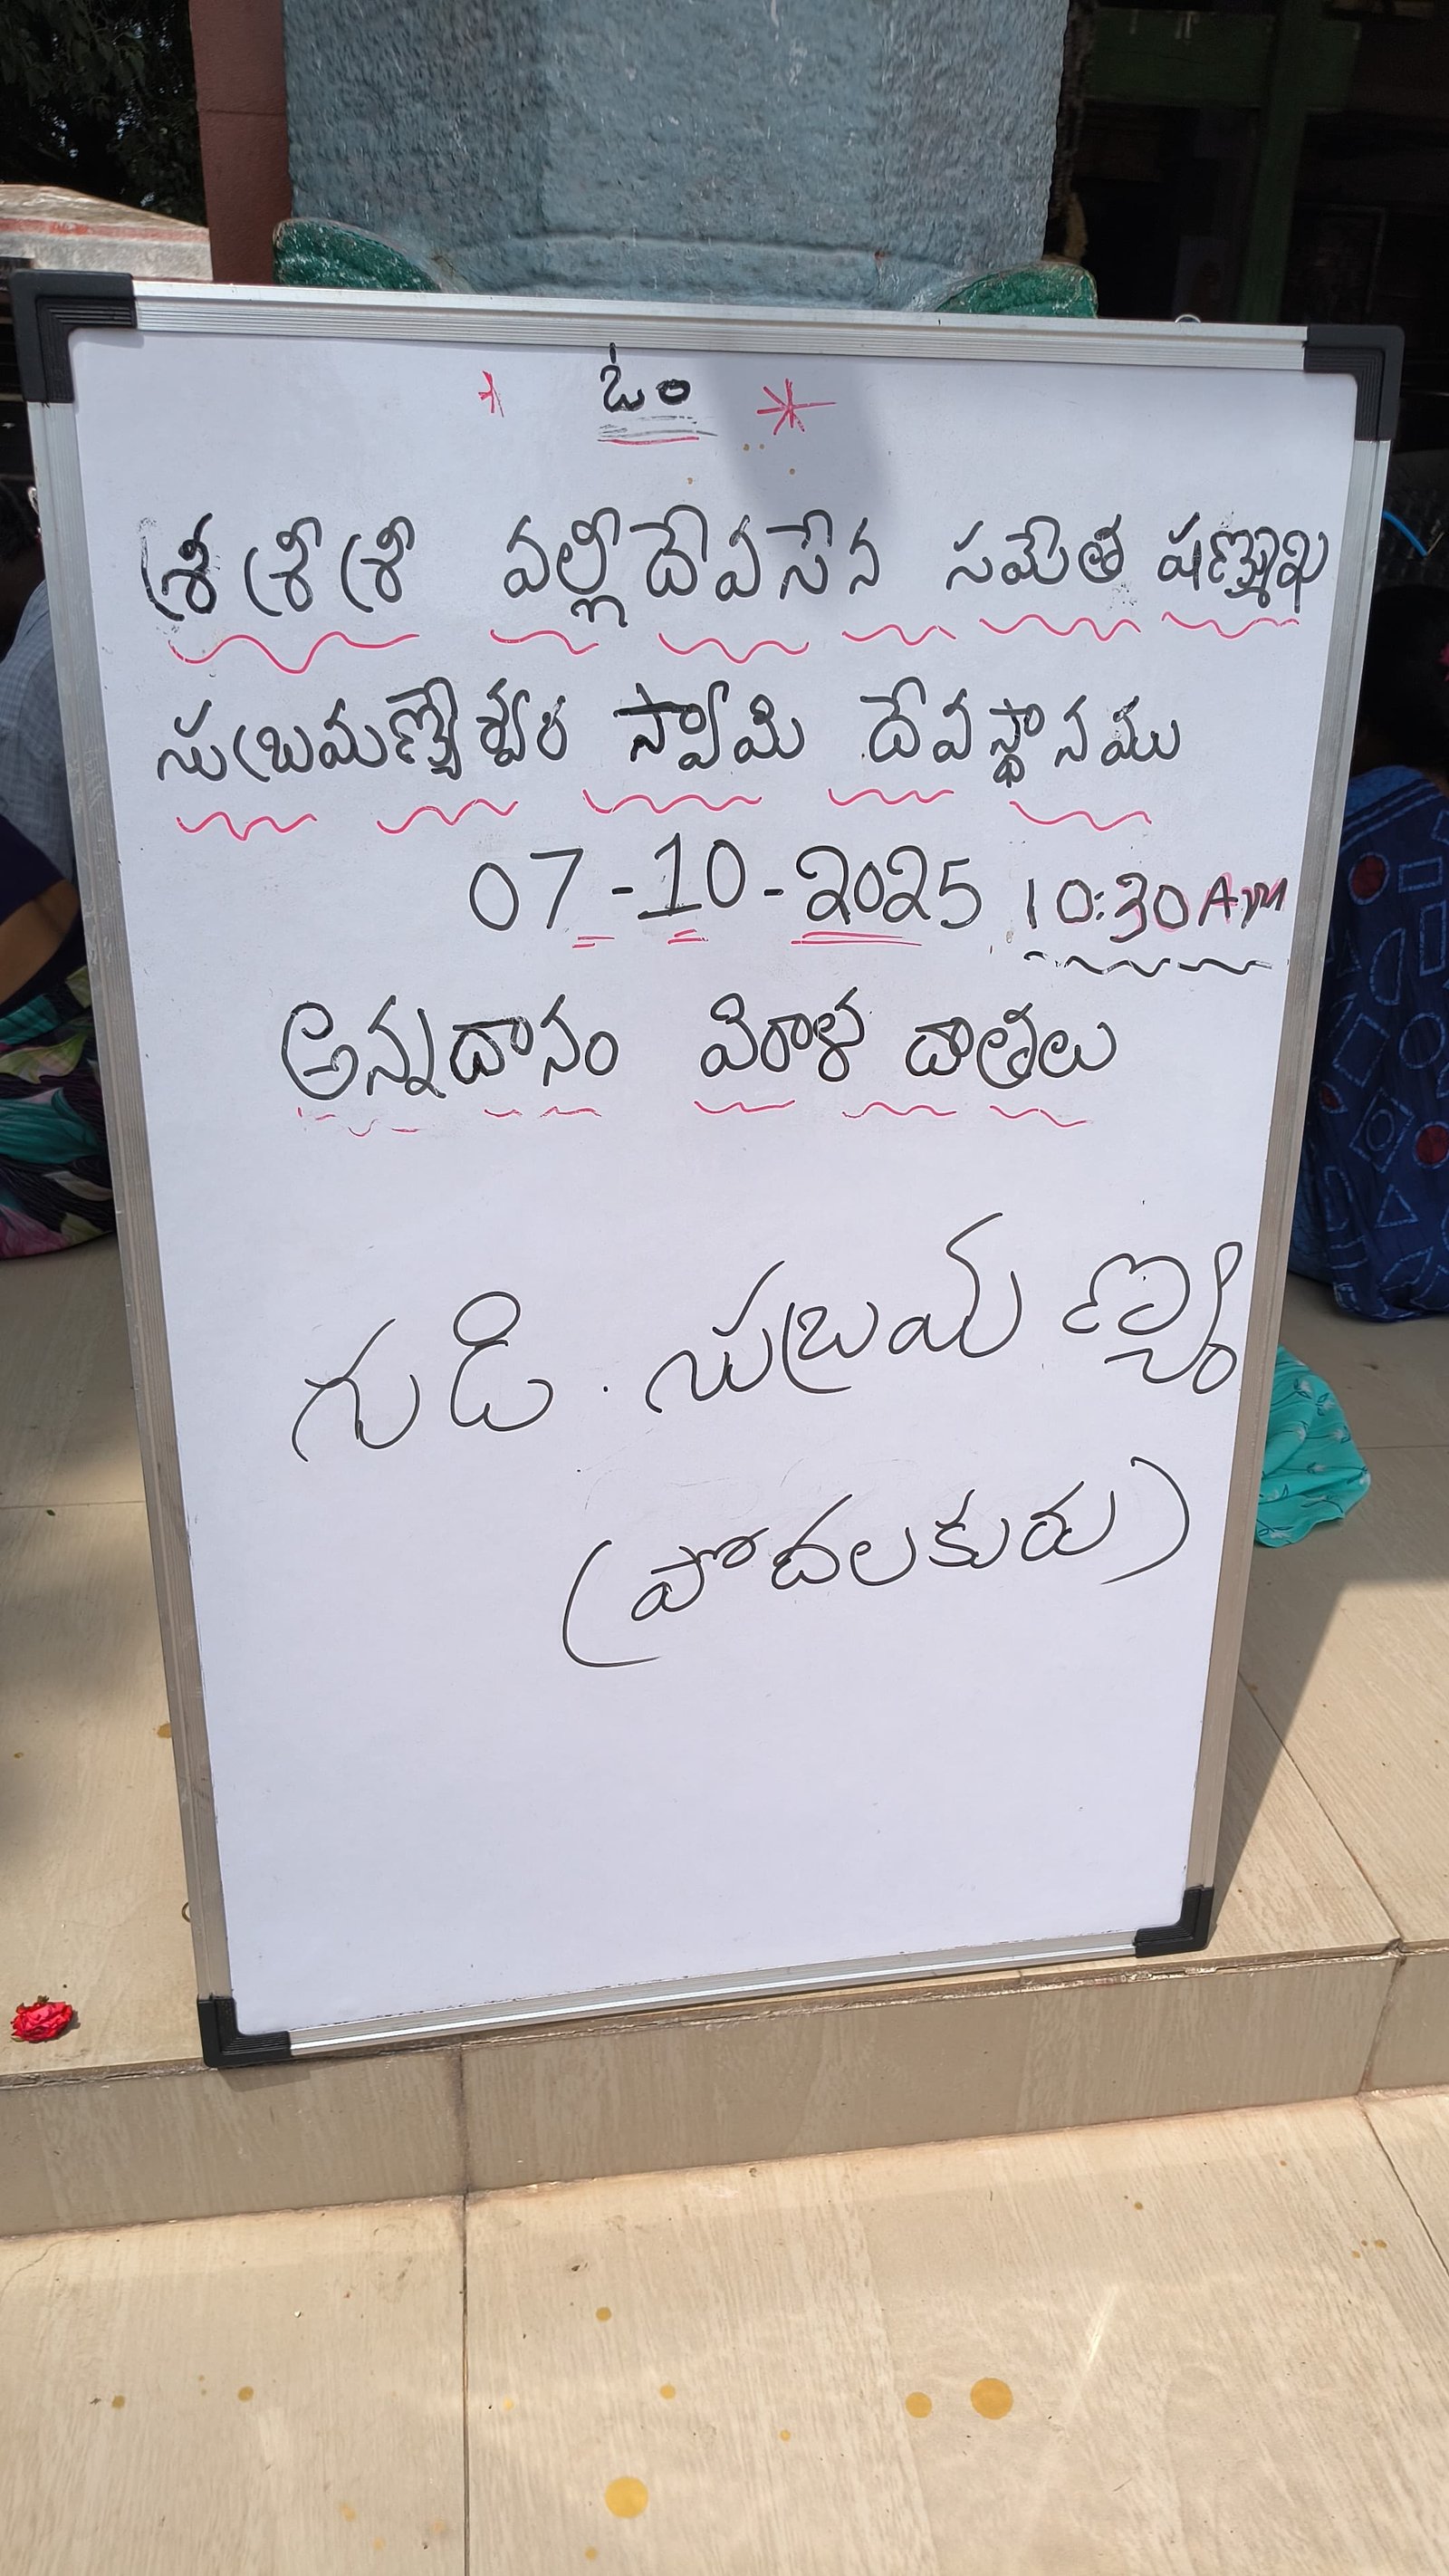 * ఓం *
శ్రీ శ్రీ శ్రీ వల్లీదేవసేన సమేత షణ్ముఖ
సుబ్రమణ్యేశ్వర స్వామి దేవస్థానము
07-10-2025 10:30AM
అన్నదానం విరాళ దాతలు
గుడి. సుబ్రమణ్యం
(పొదలకురు)